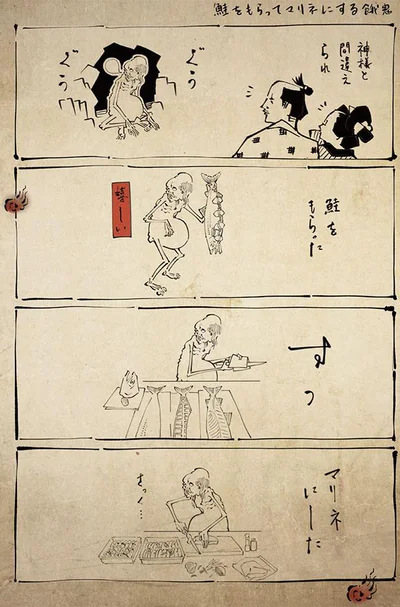 鮭をもらってマリネにする餓鬼
神様と
間違え
られ
ぐぅ
ぐぅ
鮭を
もらった
嬉しい
すっ
マリネ
にした